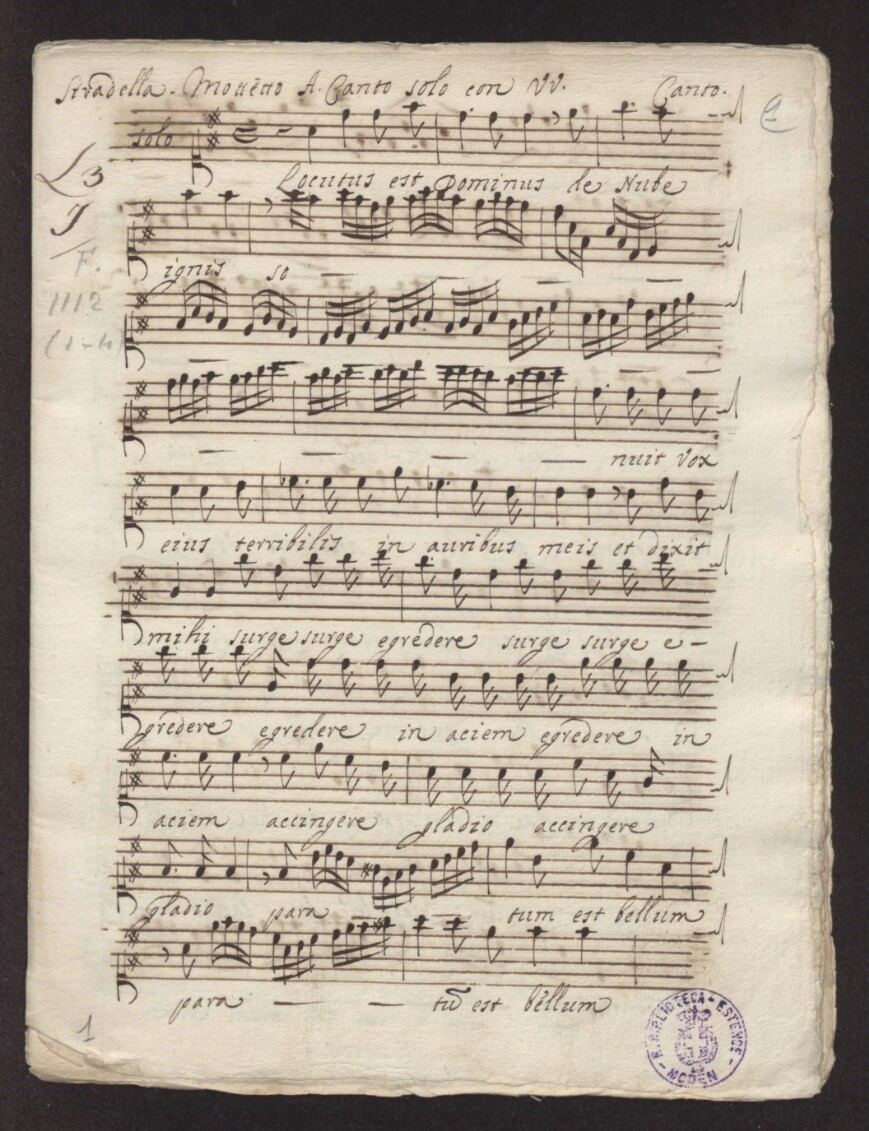 Stradella. Mottetto A. Canto solo con VV. Canto.
solo
Locutus est Dominus de Nube
L3
ignis so
F.
1112
(1-4)
nuit vox
eius terribilis in auribus meis et dixit
mihi surge surge egredere surge surge e-
gredere egredere in aciem egredere in
aciem accingere gladio accingere
gladio para tum est bellum
para tū est bellum
1
R. BIBLIOTECA ESTENSE
MODEN